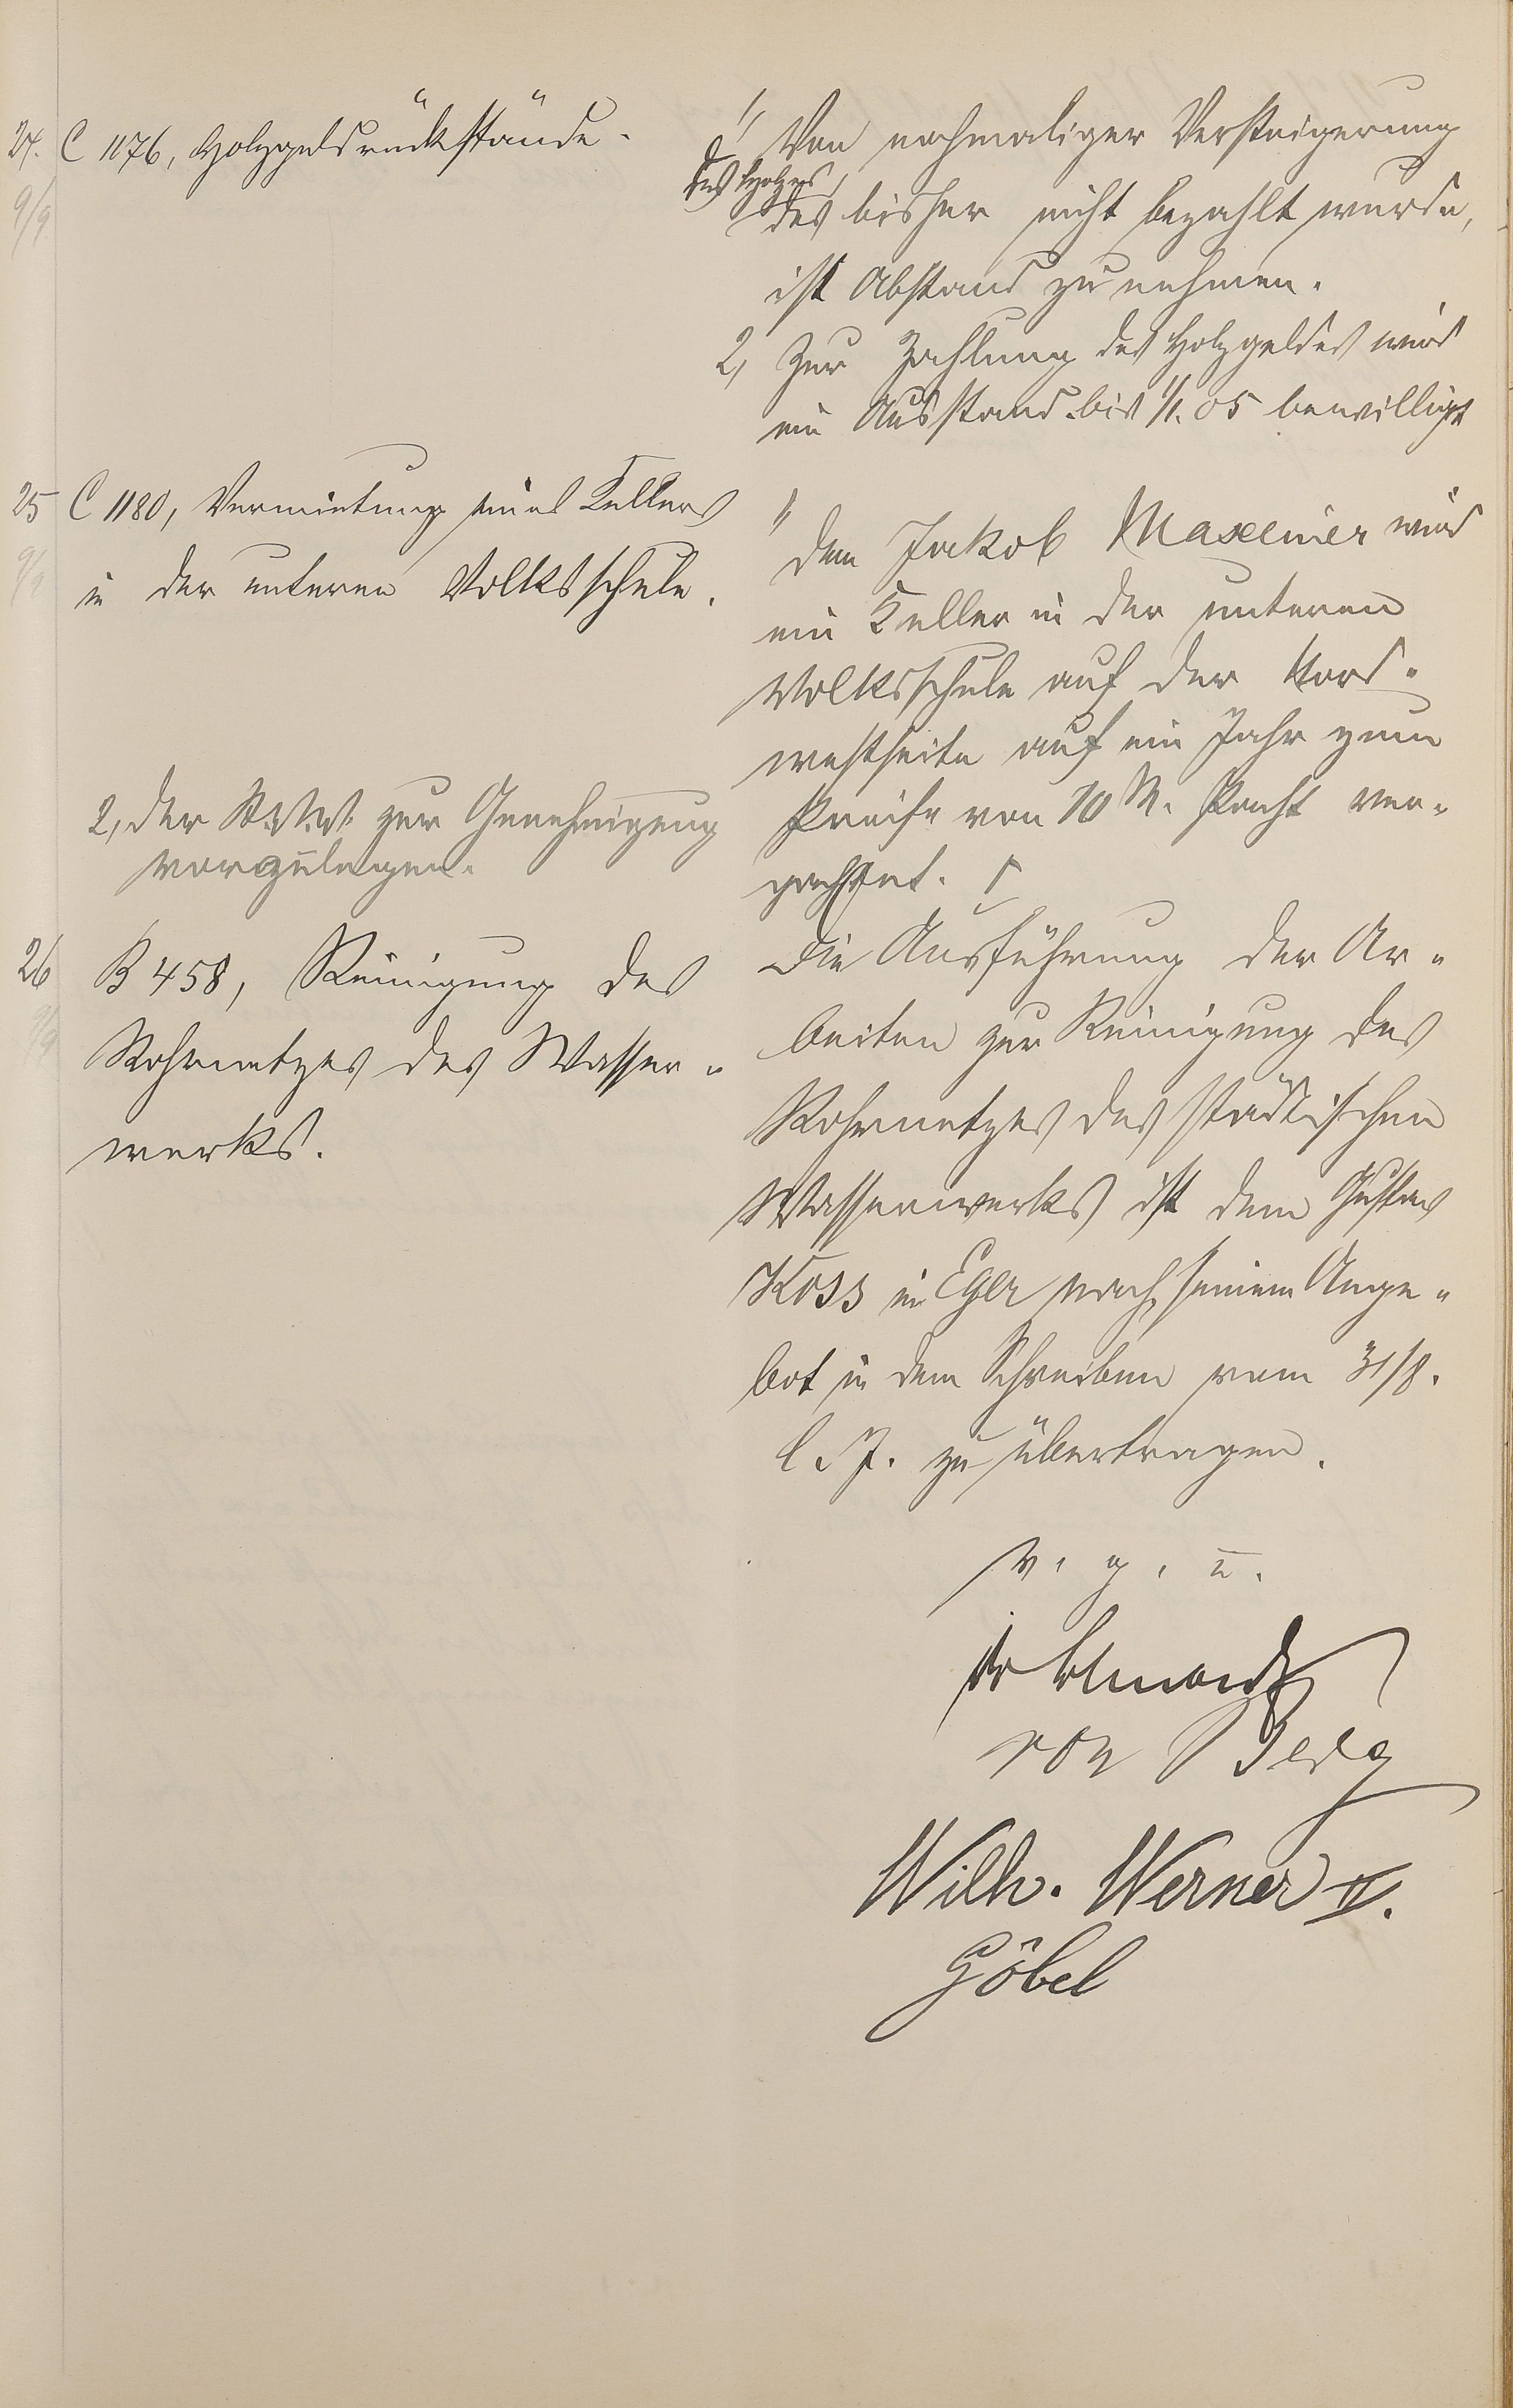 24. C 1176, Holzgeldrückstände.
9/9
1, Von nochmaliger Versteigerung
des Holzes,
das bisher nicht bezahlt wurde,
ist Abstand zu nehmen.
2, Zur Zahlung des Holzgeldes wird
ein Ausstand bis 1/1. 05 bewilligt
25 C 1180, Vermietung eines Kellers
9/9
in der unteren Volksschule.
1, Dem Jakob Maxeiner wird
ein Keller in der unteren
Volksschule auf der Nord-
westseite auf ein Jahr zum
Preise von 10 M. Pacht ver-
pachtet.
2, der St.V.V. zur Genehmigung
vorzulegen.
26 B 458, Reinigung des
9/9
Rohrnetzes des Wasser-
werks.
Die Ausführung der Ar-
beiten zur Reinigung des
Rohrnetzes des städtischen
Wasserwerks ist dem Gustav
Koss in Eger nach seinem Ange-
bot in dem Schreiben vom 31/8.
l. J. zu übertragen.
v. g. u.
von Berg
Wilh. Werner II.
Göbel